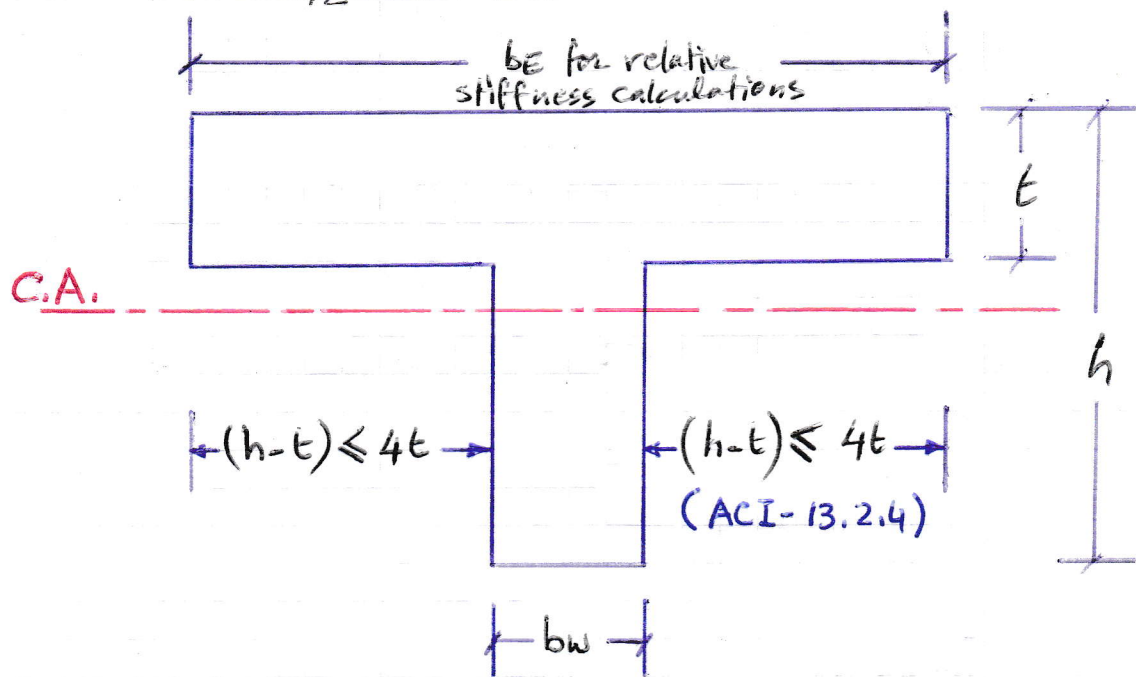 12
bE for relative
stiffness calculations
t
C.A.
h
(h-t) ≤ 4t
(h-t) ≤ 4t
(ACI-13.2.4)
bw